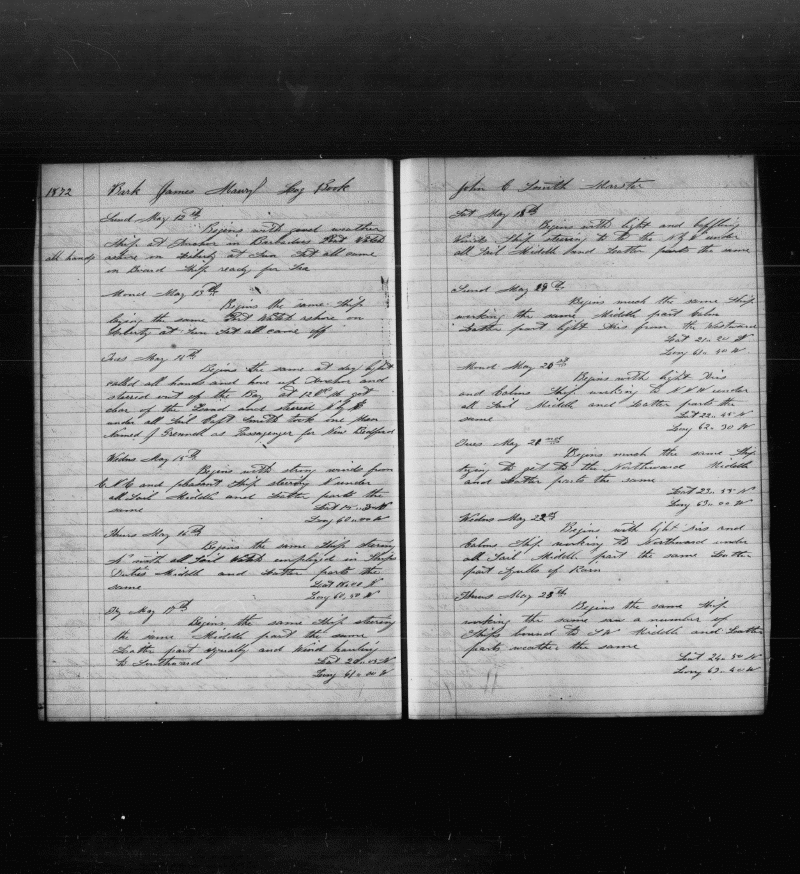 1872 Bark James Maury Log Book
Sund May 12th
Begins with good weather
Ship at Anchor in Barbadoes Port Watch
ashore on Liberty at Sun Set all came
all hands
on Board Ship ready for Sea
Mond May 13th
Begins the same Ship
lying the same Watch ashore on
Liberty at Sun Set all came off
Tues May 14th
Begins the same at day light
called all hands and hove up Anchor and
steered out of the Bay at 12 O M got
clear of the Land and steered N by
under all Sail Capt Smith took one Man
Named J Grennell as Passagenger for New Bedford
Wedns May 15th
Begins with strong winds from
E N E and pleasent Ship steering N under
all Sail Middle and Latter parts the
same Lat 15
Long 60=00 W
Thurs May 16th
Begins the same Ship stering
N with all Sail Watch employed in Ships
Duties Middle and Latter parts the
same Lat 18=00 N
Long 60,50 W
Fry May 17th
Begins the same Ship steering
the same Middle part the same
Latter part squally and Wind hauling
to Southward Lat 20=03 N
Long 61=00 W
John C Smith Master
Sat May 18th
Begins with light and baffling
Winds Ship steering to to the N by W under
all Sail Middle and Latter parts the same
Sund May 19th
Begins much the same Ship
working the same Middle part Calm
Latter part light Airs from the Westward
Lat 21=20 N
Long 61=50 W
Mond May 20th
Begins with light Airs
and Calms Ship working to N N W under
all Sail Middle and Latter parts the
same Lat 22=45 N
Long 62=30 W
Tues May 21
Begins much the same Ship
trying to get to the Northward Middle
and Latter parts the same
Lat 23=55 N
Long 63=00 W
Wedns May 22
Begins with light Airs and
Calms Ship working to Northward under
all Sail Middle part the same Latter
part Squalls of Rain
Thurs May 23
Begins the same Ship
working the same saw a number of
Ships bound to S W Middle and Latter
parts weather the same
Lat 24=50 N
Long 63=40 W